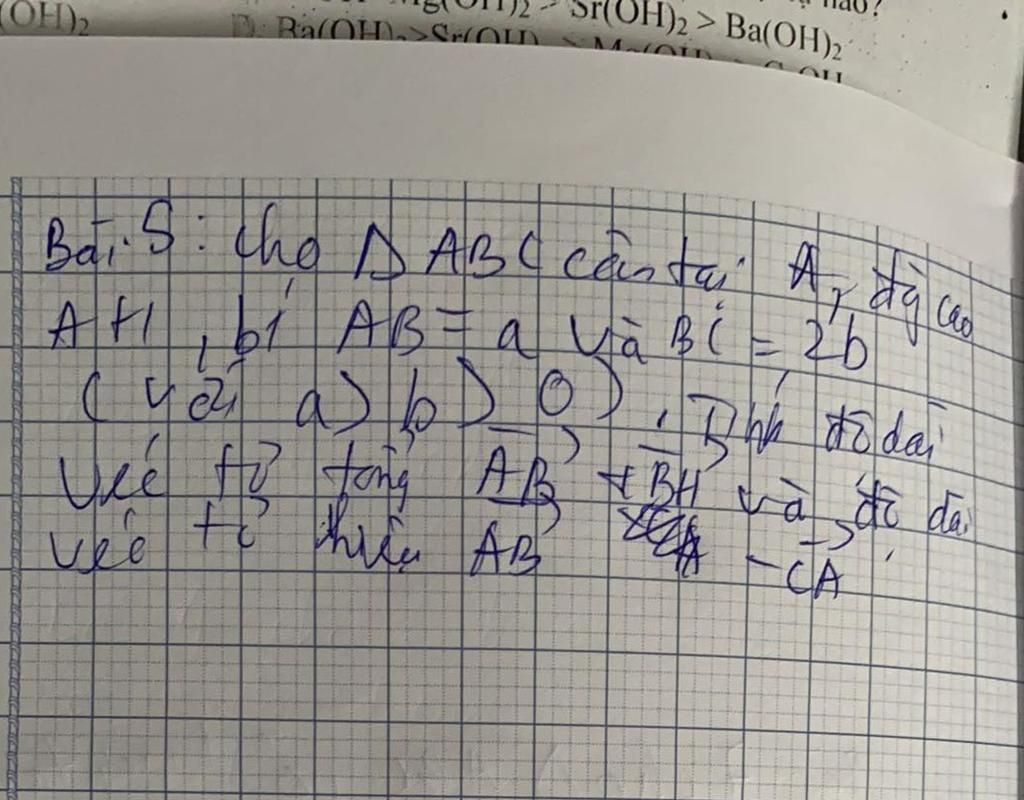 (OH)₂ Mg(OH)₂ > Sr(OH)₂ > Ba(OH)₂ nào?
D. Ba(OH)₂ > Sr(OH)
Bài 5: Cho Δ ABC cân tại A, đg cao
AH, bí AB = a và BC = 2b
(với a > b > 0). Tính độ dài
véc tơ tổng AB + BH và độ dài
véc tơ hiệu AB - CA